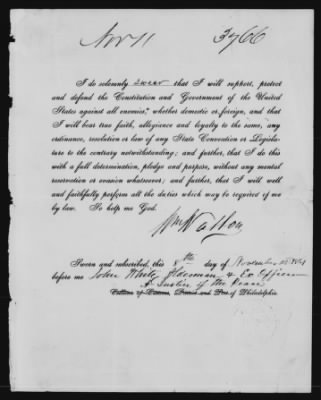 Nov 11 3766
I do solemnly swear that I will support, protect
and defend the Constitution and Government of the United
States against all enemies, whether domestic or foreign, and that
I will bear true faith, allegiance and loyalty to the same, any
ordinance, resolution or law of any State Convention or Legisla-
ture to the contrary notwithstanding; and further, that I do this
with a full determination, pledge and purpose, without any mental
reservation or evasion whatsoever; and further, that I will well
and faithfully perform all the duties which may be required of me
by law. So help me God.
Wm Walton
Sworn and subscribed, this 8th day of November
before me John White Alderman & Ex Officio
a Justice of the Peace
of Philadelphia.